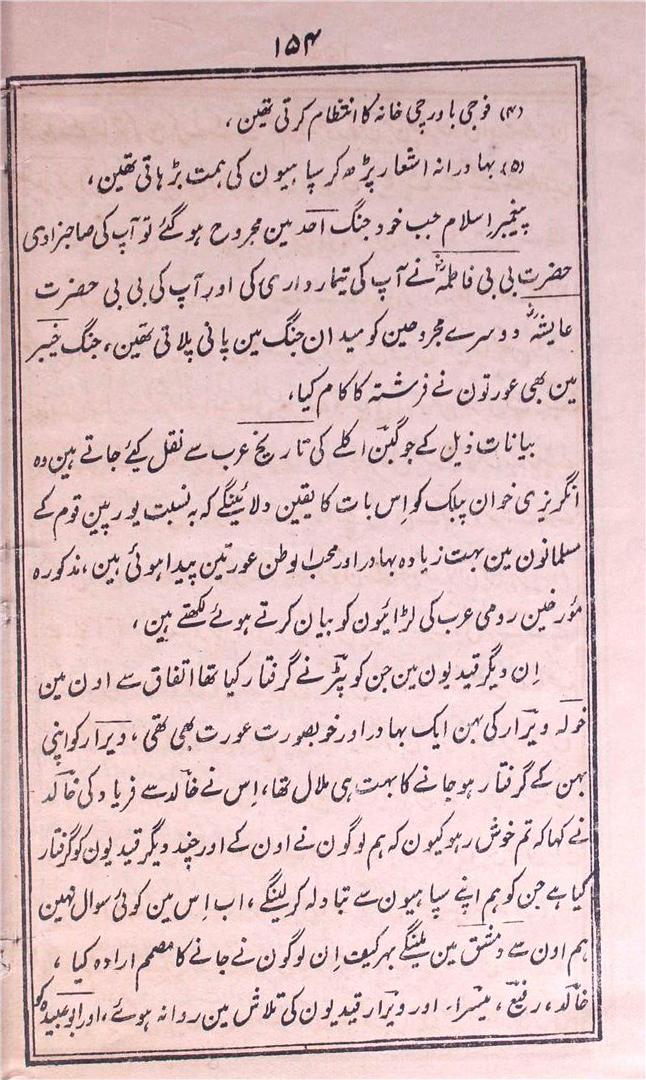 ۱۵۴
(۴) فوجی باورچی خانہ کا انتظام کرتی تھین،
(۵) بہادرانہ اشعار پڑھ کر سپاہیون کی ہمت بڑہاتی تھین،
پیغمبر اسلام جب خود جنگ احد مین مجروح ہو گئے تو آپ کی صاحبزادی
حضرت بی بی فاطمہؓ نے آپ کی تیمارداری کی اور آپ کی بی بی حضرت
عایشہؓ دوسرے مجروحین کو میدان جنگ مین پانی پلاتی تھین، جنگ خیبر
مین بھی عورتون نے فرشتہ کا کام کیا،
بیانات ذیل کے جو گبن اکلے کی تاریخ عرب سے نقل کیے جاتے ہین وہ
انگریزی خوان پبلک کو اِس بات کا یقین دلائینگے کہ بہ نسبت یورپین قوم کے
مسلمانون مین بہت زیادہ بہادر اور محب الوطن عورتین پیدا ہوئی ہین، مذکورہ
مؤرخین رومی عرب کی لڑائیون کو بیان کرتے ہوئے لکھتے ہین،
اِن دیگر قیدیون مین جن کو پٹر نے گرفتار کیا تھا اتفاق سے اون مین
خولہ ویرار کی بہن ایک بہادر اور خوبصورت عورت بھی تھی، ویرار کو اپنی
بہن کے گرفتار ہو جانے کا بہت ہی ملال تھا، اِس نے خالد سے فریاد کی خالد
نے کہا کہ تم خوش رہو کیون کہ ہم لوگون نے اون کے اور چند دیگر قیدیون کو گرفتار
کیا ہے جن کو ہم اپنے سپاہیون سے تبادلہ کر لینگے، اب اِس مین کوئی سوال نہین
ہم اون سے دمشق مین ملینگے بہرکیف اِن لوگون نے جانے کا مصمم ارادہ کیا،
خالد، رفیع، میسرا۔ اور ویرار قیدیون کی تلاش مین روانہ ہوئے، اور ابو عبیدہ کو